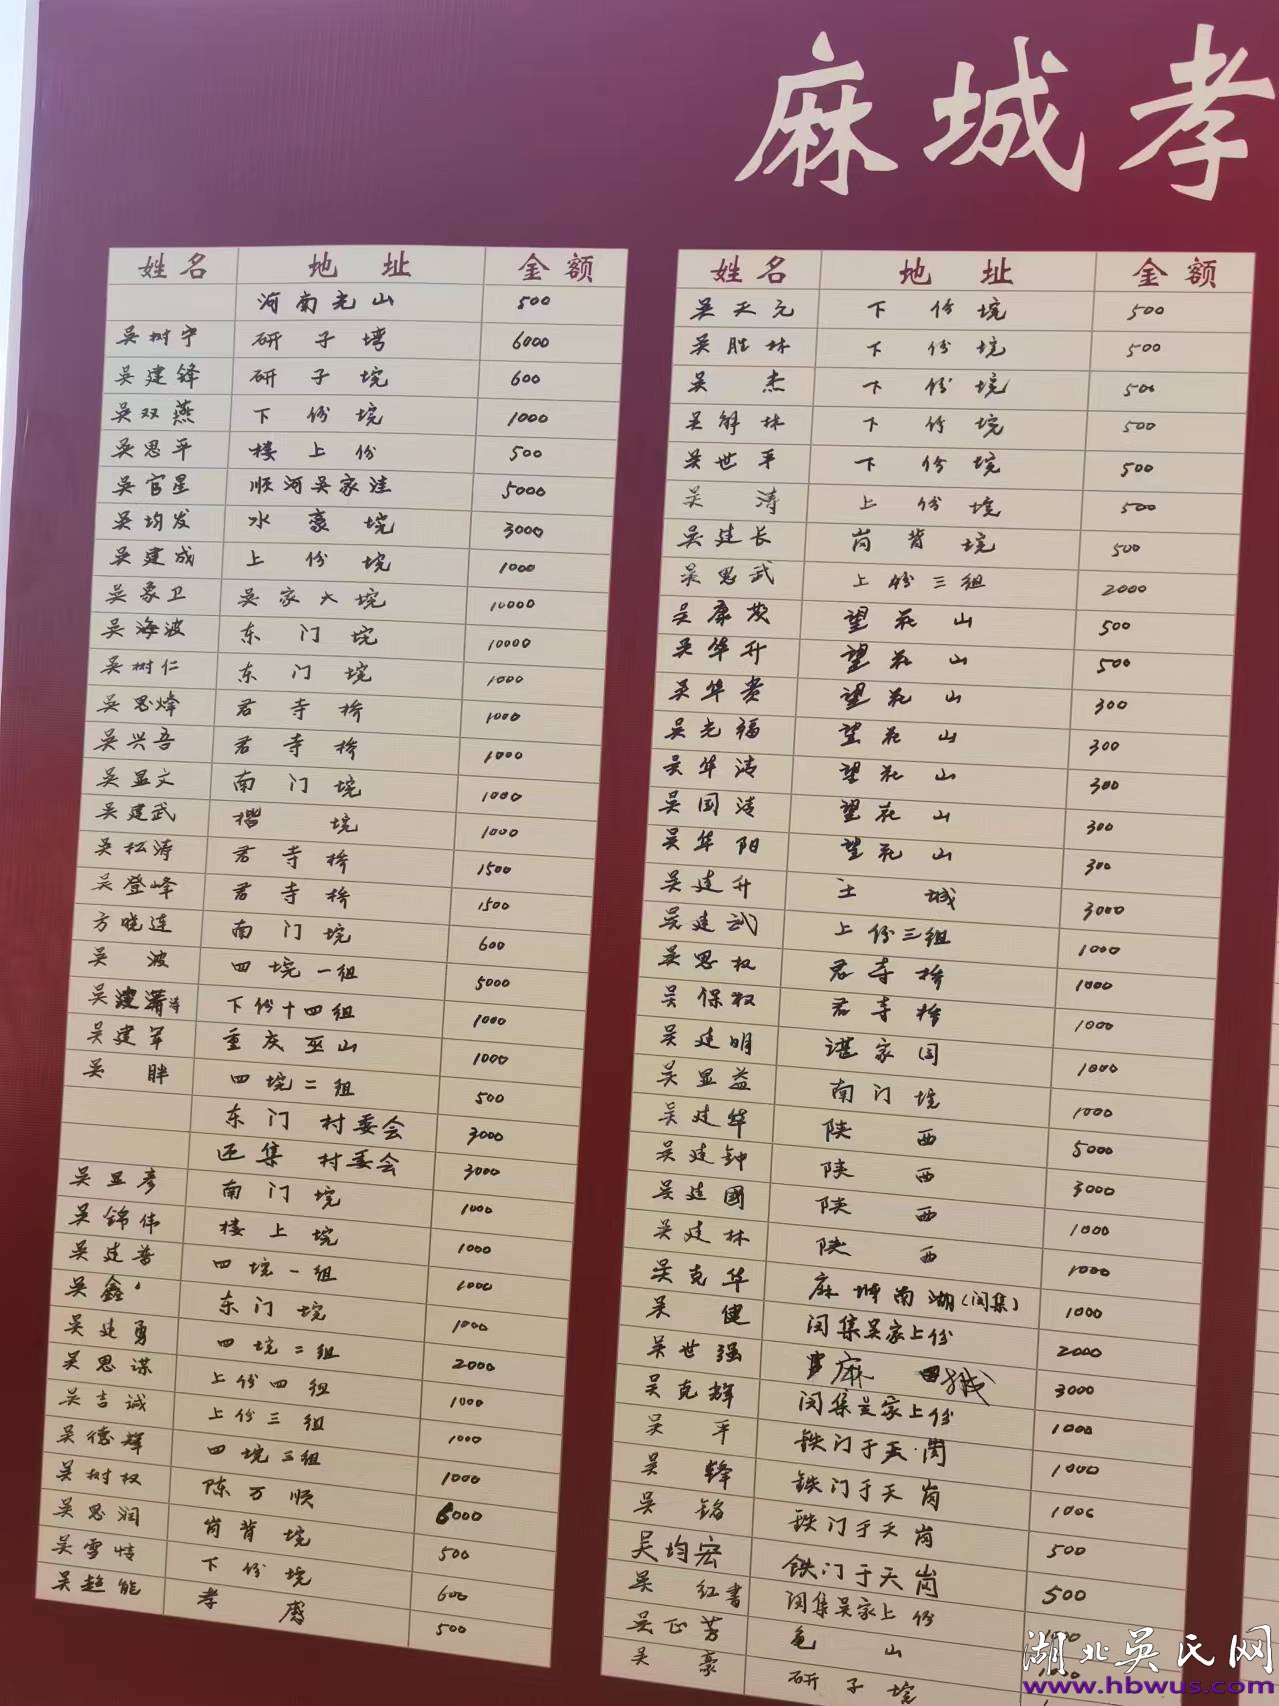 麻城孝
姓名 地址 金额
河南光山 500
吴树宁 研子塆 6000
吴建锋 研子垸 600
吴双燕 下份垸 1000
吴思平 楼上份 500
吴官星 顺河吴家洼 5000
吴均发 水寨垸 3000
吴建成 上份垸 1000
吴家卫 吴家大垸 10000
吴海波 东门垸 10000
吴树仁 东门垸 1000
吴思烽 君寺桥 1000
吴兴吾 君寺桥 1000
吴显文 南门垸 1000
吴建武 垸 1000
吴松涛 君寺桥 1500
吴登峰 君寺桥 1500
方晓连 南门垸 600
吴波 四垸一组 5000
吴 下份十四组 1000
吴建军 重庆巫山 1000
吴胜 四垸二组 500
东门村委会 3000
迊集村委会 3000
吴显彦 南门垸 1000
吴锦伟 楼上垸 1000
吴建普 四垸一组 1000
吴鑫 东门垸 1000
吴建勇 四垸二组 2000
吴思谋 上份四组 1000
吴吉诚 上份三组 1000
吴德辉 四垸三组 1000
吴树权 陈万顺 6000
吴思润 岗背垸 500
吴雪恃 下份垸 600
吴超能 孝感 500
姓名 地址 金额
吴天元 下份垸 500
吴胜林 下份垸 500
吴杰 下份垸 500
吴解林 下份垸 500
吴世平 下份垸 500
吴涛 上份垸 500
吴建长 岗背垸 500
吴思武 上份三组 2000
吴康发 望花山 500
吴华升 望花山 500
吴华贵 望花山 300
吴光福 望花山 300
吴华清 望花山 300
吴国清 望花山 300
吴华阳 望花山 300
吴建升 土城 3000
吴建武 上份三组 1000
吴思权 君寺桥 1000
吴保权 君寺桥 1000
吴建明 谌家园 1000
吴显益 南门垸 1000
吴建华 陕西 5000
吴建钟 陕西 3000
吴建國 陕西 1000
吴建林 陕西 1000
吴克华 麻城南湖(闵集) 1000
吴健 闵集吴家上份 2000
吴世强 麻城 3000
吴克辉 闵集吴家上份 1000
吴平 铁门于天岗 1000
吴锋 铁门于天岗 1000
吴铭 铁门于天岗 500
吴均宏 铁门于天岗 500
吴红書 闵集吴家上份
吴正芳 龟山
吴豪 研子垸
湖北吴氏网
www.hbwus.com